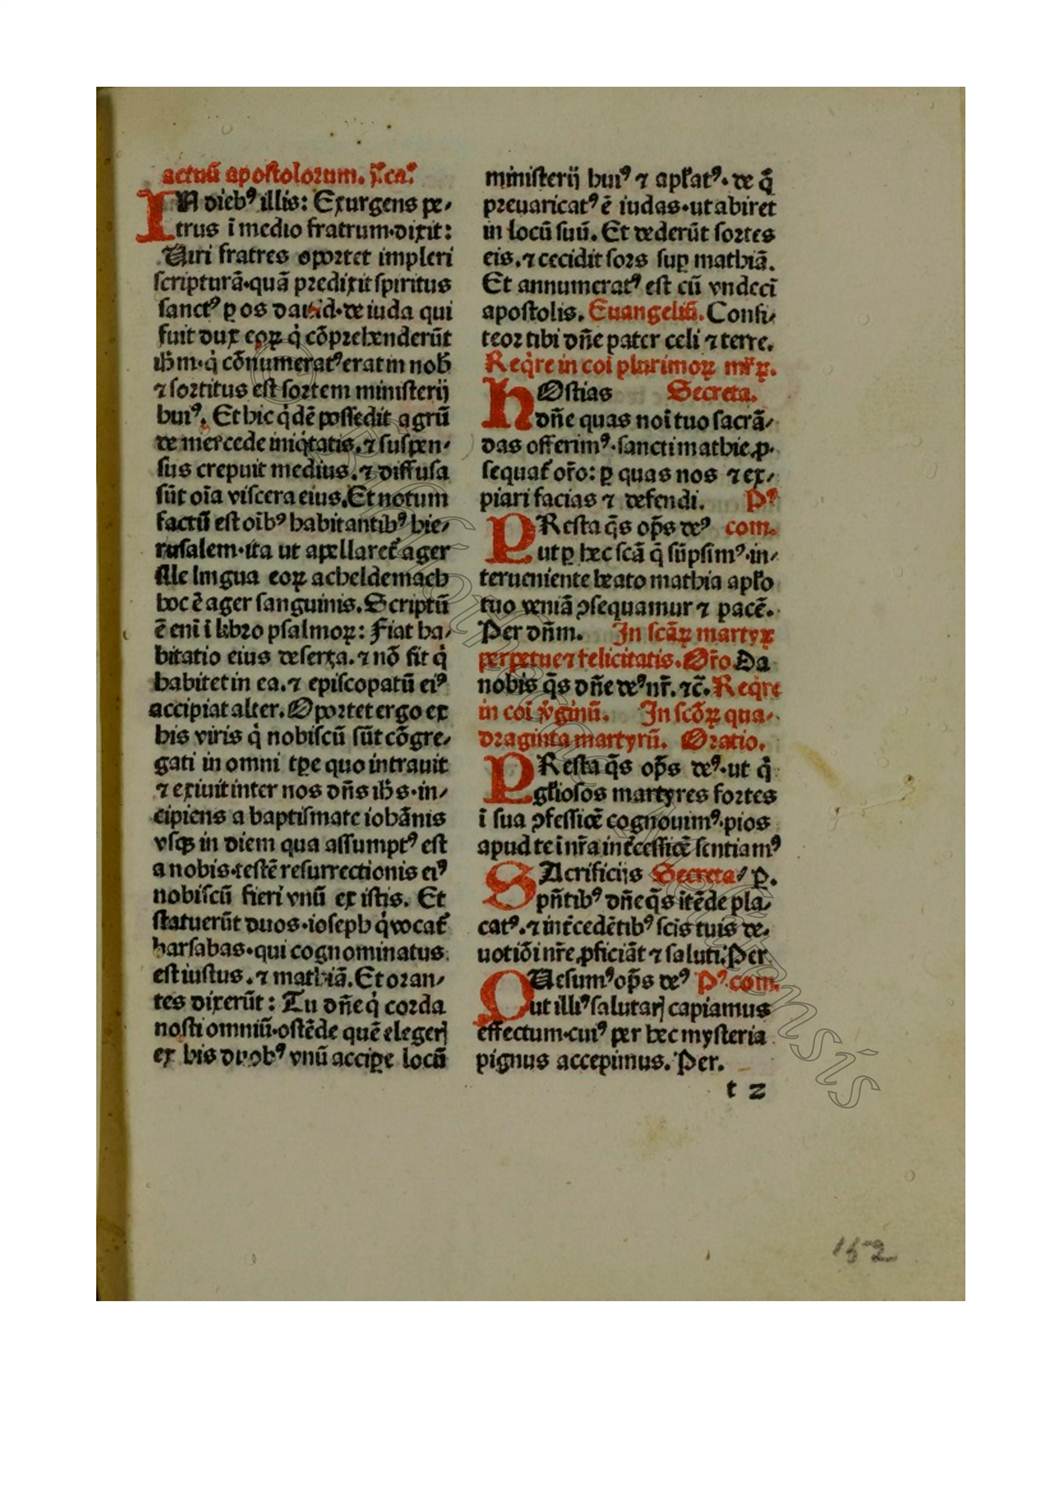 actuū apostolorum. j. caꝰ
IN diebꝰ illis: Exurgens pe⸗
trus ī medio fratrum·dixit:
Viri fratres oportet impleri
scripturā·quā predixit spiritus
sanctꝰ ꝑ os dauid·de iuda qui
fuit dux eoꝝ q̇ cōprehenderūt
ihm·q̇ cōnumeratꝰ erat in nob̄
⁊ sortitus est sortem ministerij
huiꝰ. Et hic q̇dē possedit agrū
de mercede iniq̇tatis.⁊ suspen⸗
sus crepuit medius.⁊ diffusa
sūt oīa viscera eius. Et notum
factū est oībꝰ habitantibꝰ hie⸗
rusalem·ita ut apellaret̄ ager
ille lingua eoꝝ acheldemach
hoc ē ager sanguinis. Scriptū
ē enī ī libro psalmoꝝ: Fiat ha⸗
bitatio eius deserta.⁊ nō sit q̇
habitet in ea.⁊ episcopatū eiꝰ
accipiat alter. Oportet ergo ex
his viris q̇ nobiscū sūt cōgre⸗
gati in omni tp̄e quo intrauit
⁊ exiuit inter nos dn̄s ih̄s·in⸗
cipiens a baptismate iohānis
vsqꝫ in diem qua assumptꝰ est
a nobis·testē resurrectionis eiꝰ
nobiscū fieri vnū ex istis. Et
statuerūt duos·ioseph q̇ vocat̄
barsabas·qui cognominatus
est iustus.⁊ mathiā. Et oran⸗
tes dixerūt: Tu dn̄e q̇ corda
nosti omniū·ostēde quē elegerj
ex his duobꝰ vnū accipe locū
ministerij huiꝰ ⁊ apl̄atꝰ·de q̄
preuaricatꝰ ē iudas·ut abiret
in locū suū. Et dederūt sortes
eis.⁊ cecidit sors suꝑ mathiā.
Et annumeratꝰ est cū vndecī
apostolis. Euangeliū. Confi⸗
teor tibi dn̄e pater celi ⁊ terre.
Req̇re in coī plurimoꝝ mr̄ꝝ.
HOstias Secreta.
dn̄e quas noī tuo sacrā⸗
das offerimꝰ·sancti mathie ꝓ⸗
sequat̄ or̄o: ꝑ quas nos ⁊ ex⸗
piari facias ⁊ defendi. Pꝰ
PResta q̄s op̄s deꝰ com.
ut ꝑ hec scā q̄ sūpsimꝰ·in⸗
terueniente beato mathia apl̄o
tuo veniā ꝯsequamur ⁊ pacē.
Per dn̄m. In scāꝝ martyꝝ
perpetue ⁊ felicitatis. Or̄o Da
nobis q̄s dn̄e deꝰ nr̄. ⁊c̄. Req̇re
in coī v̇ginū. In scōꝝ qua⸗
draginta martyrū. Oratio.
PResta q̄s op̄s deꝰ·ut q̇
gl̄iosos martyres fortes
ī sua ꝯfessiōe cognouimꝰ·pios
apud te ī nr̄a int̄cessiōe sentiamꝰ
SAcrificijs Secreta ꝑ.
pn̄tibꝰ dn̄e q̄s itēde pla⸗
catꝰ.⁊ int̄cedētibꝰ scīs tuis de⸗
uotiōi nr̄e ꝓficiāt ⁊ saluti. Per
QUesumꝰ op̄s deꝰ Pꝰ com.
ut illiꝰ salutarj capiamus
effectum·cuiꝰ per hec mysteria
pignus accepimus. Per.
t 2
152